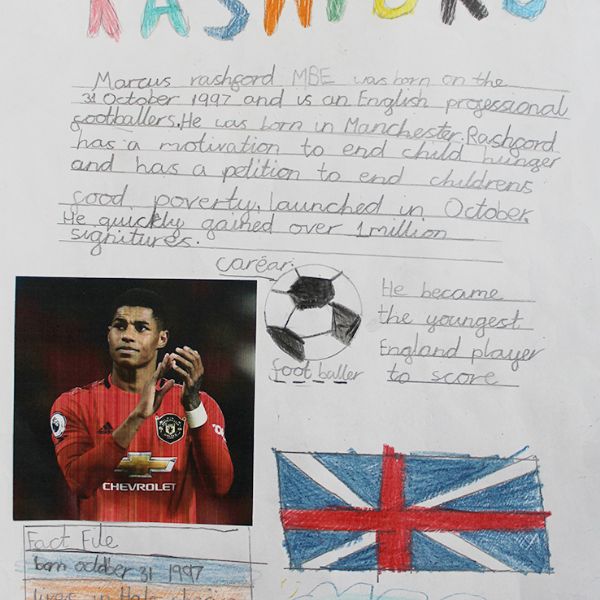 RASHFORD
Marcus rashford MBE was born on the
31 October 1997 and is an English professional
footballers. He was born in Manchester. Rashford
has a motivation to end child hunger
and has a petition to end childrens
food poverty. launched in October
He quickly gained over 1million
signitures.
carear.
He became
the youngest
England player
to score
foot baller
CHEVROLET
Fact File
born october 31 1997
lives in